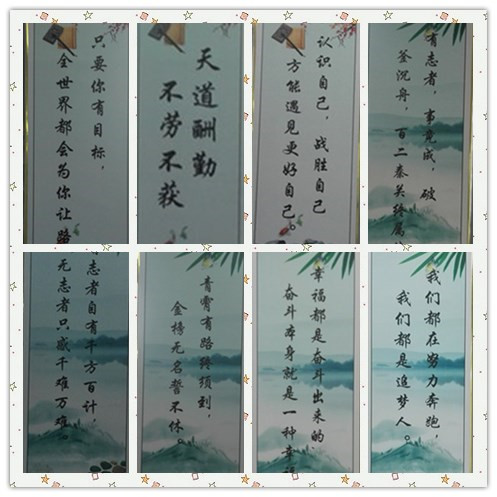 只要你有目标，
全世界都会为你让路
天道酬勤
不劳不获
认识自己，战胜自己
方能遇见更好自己。
有志者，事竟成，破
釜沉舟，百二秦关终属
有志者自有千方百计，
无志者只感千难万难。
青霄有路终须到，
金榜无名誓不休。
幸福都是奋斗出来的
奋斗本身就是一种幸福
我们都在努力奔跑，
我们都是追梦人。